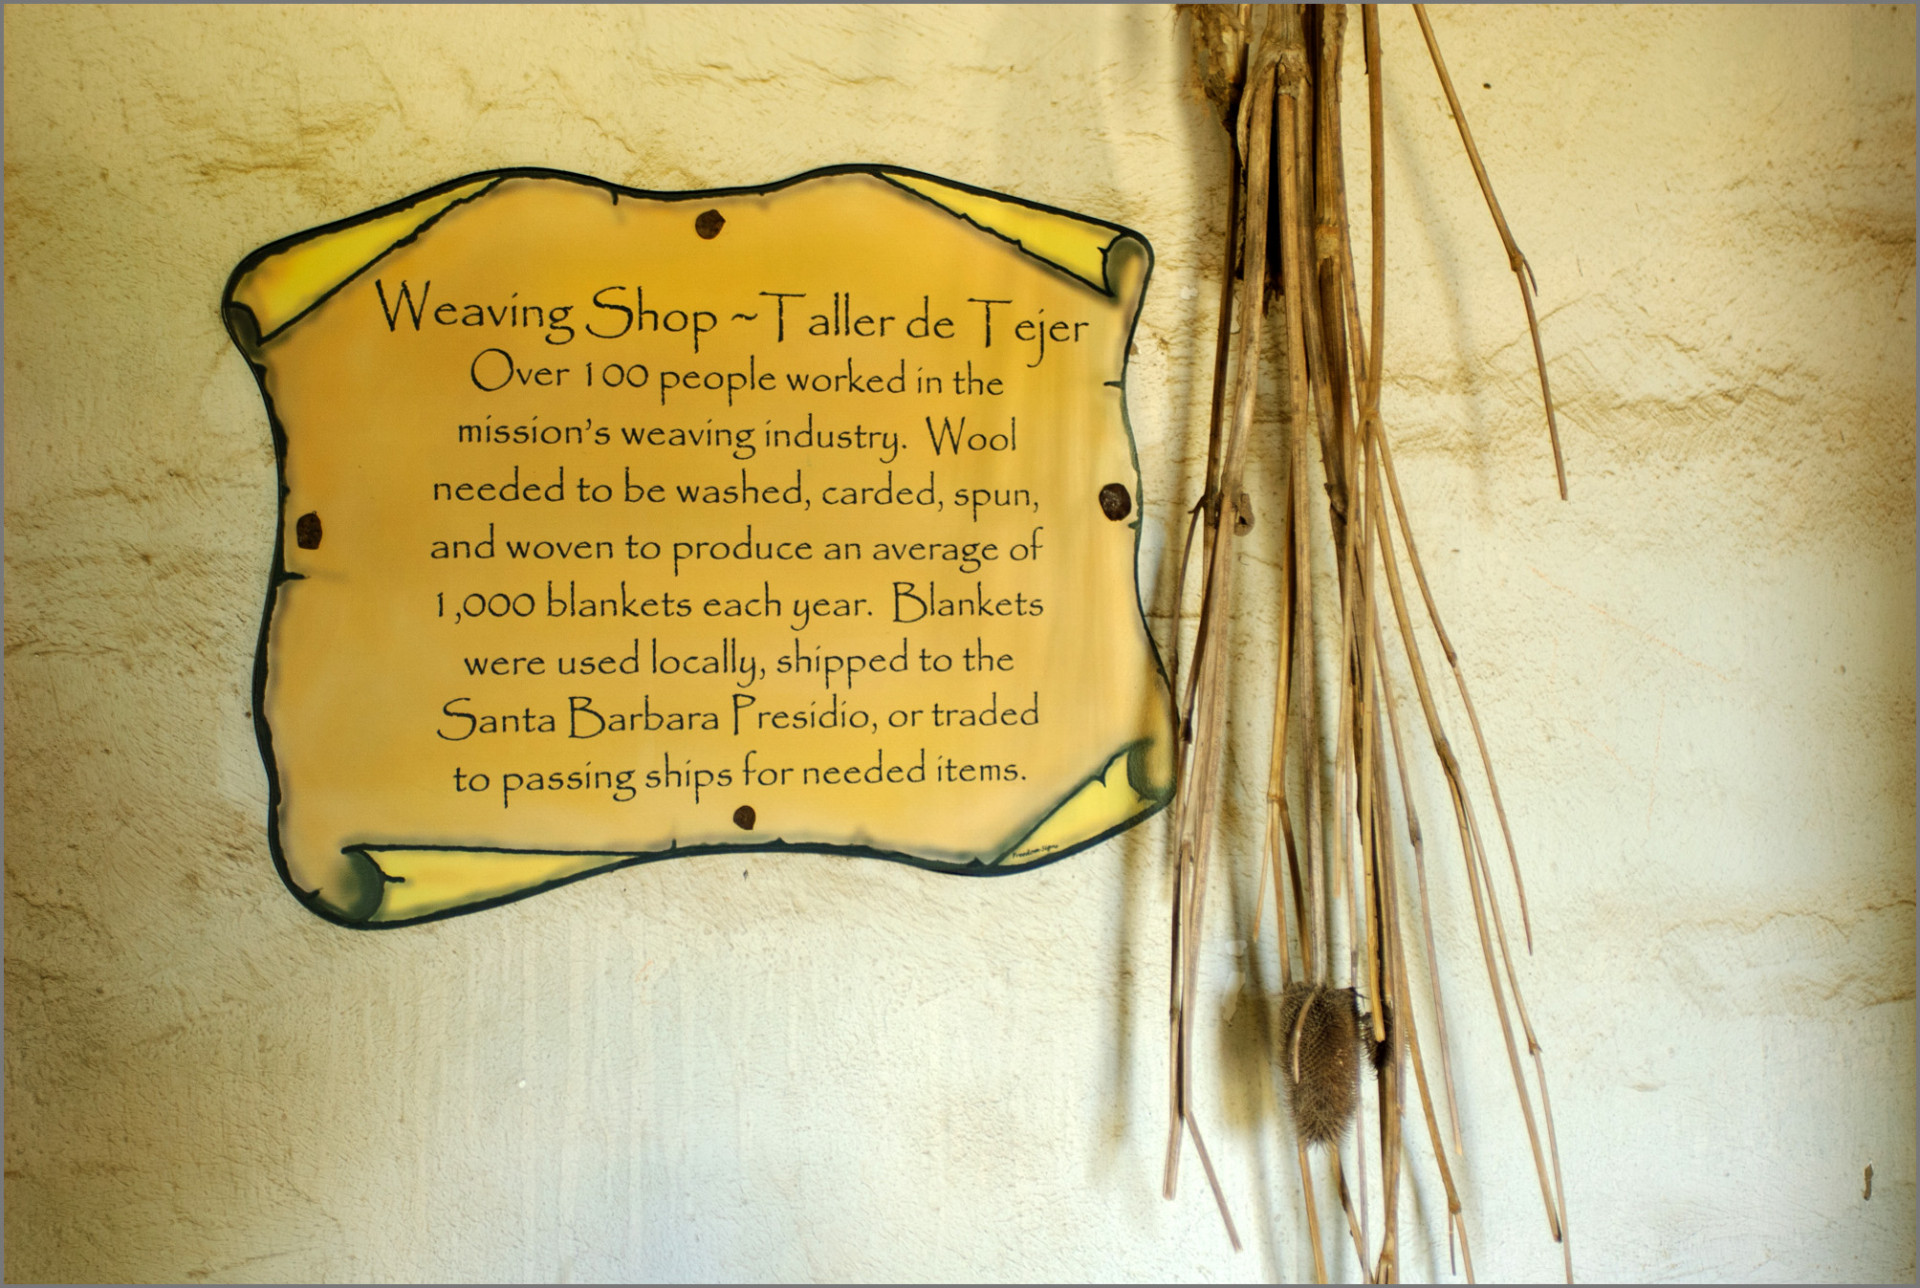 Weaving Shop ~ Taller de Tejer
Over 100 people worked in the
mission's weaving industry. Wool
needed to be washed, carded, spun,
and woven to produce an average of
1,000 blankets each year. Blankets
were used locally, shipped to the
Santa Barbara Presidio, or traded
to passing ships for needed items.